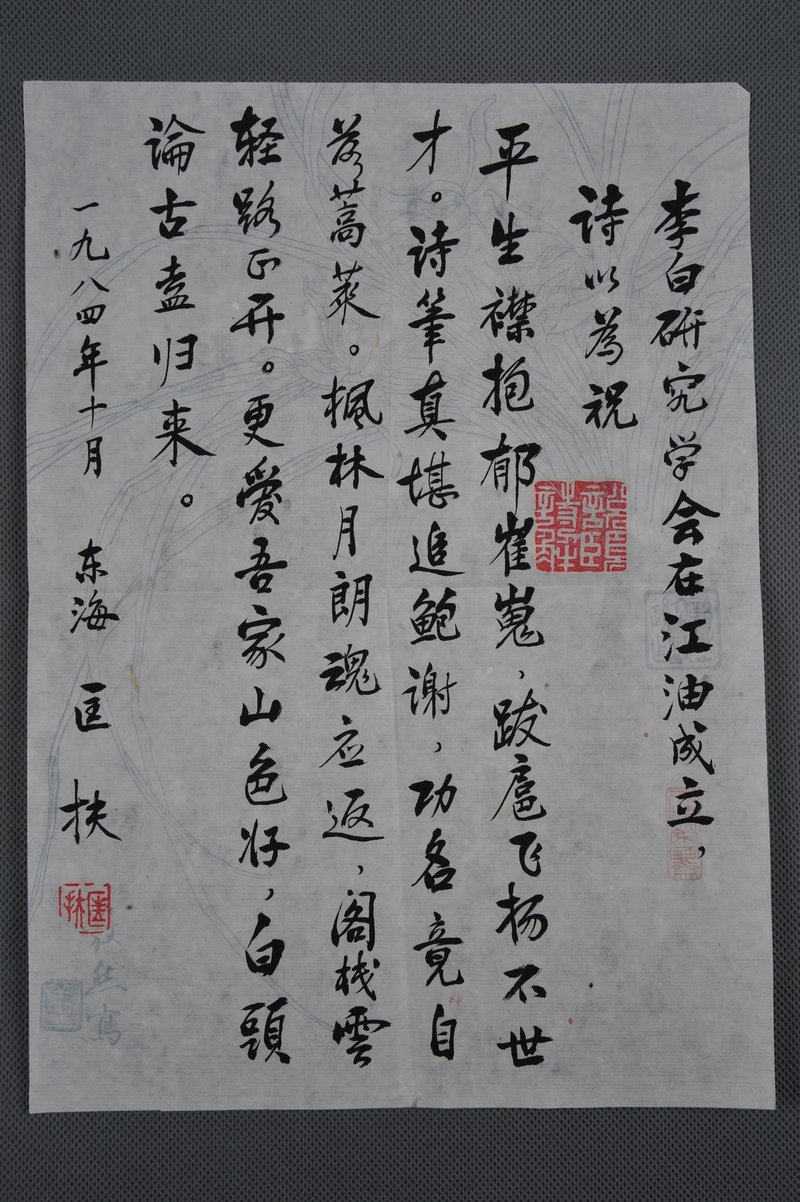 李白研究学会在江油成立，
诗以為祝
平生襟抱郁崔嵬，跋扈飞扬不世
才。诗筆真堪追鲍谢，功名竟自
落蒿莱。楓林月朗魂应返，阁栈雲
轻路正开。更愛吾家山色好，白頭
論古盍归来。
一九八四年十月 东海 匡扶
匡扶